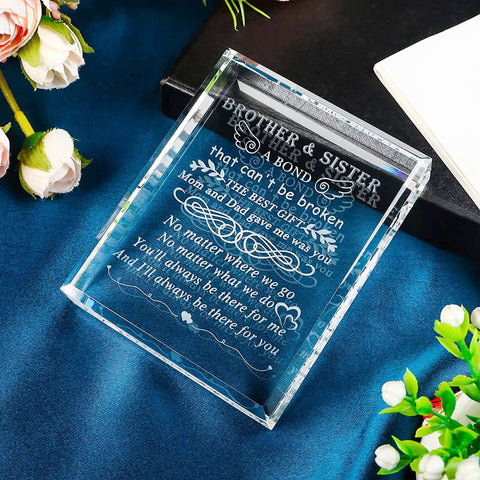 BROTHER & SISTER
A BOND
that can't be broken
THE BEST GIFT
Mom and Dad gave me was you
No matter where we go
No matter what we do
You'll always be there for me
And I'll always be there for you